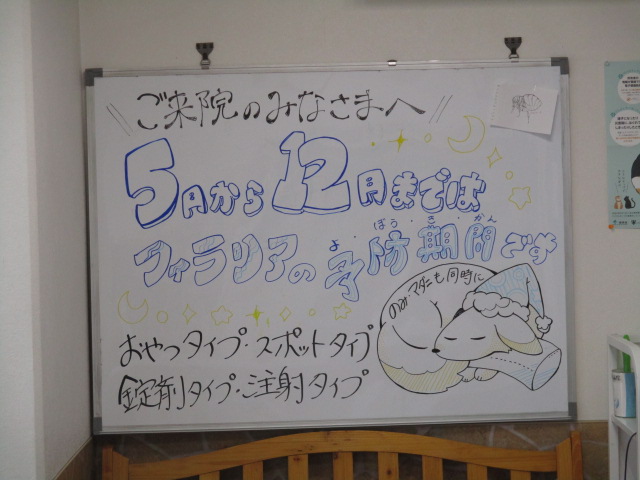 ご来院のみなさまへ
5月から12月までは
フィラリアの予防期間です
よ ぼう・き・かん
のみ・マダニも同時に
おやつタイプ・スポットタイプ
錠剤タイプ・注射タイプ